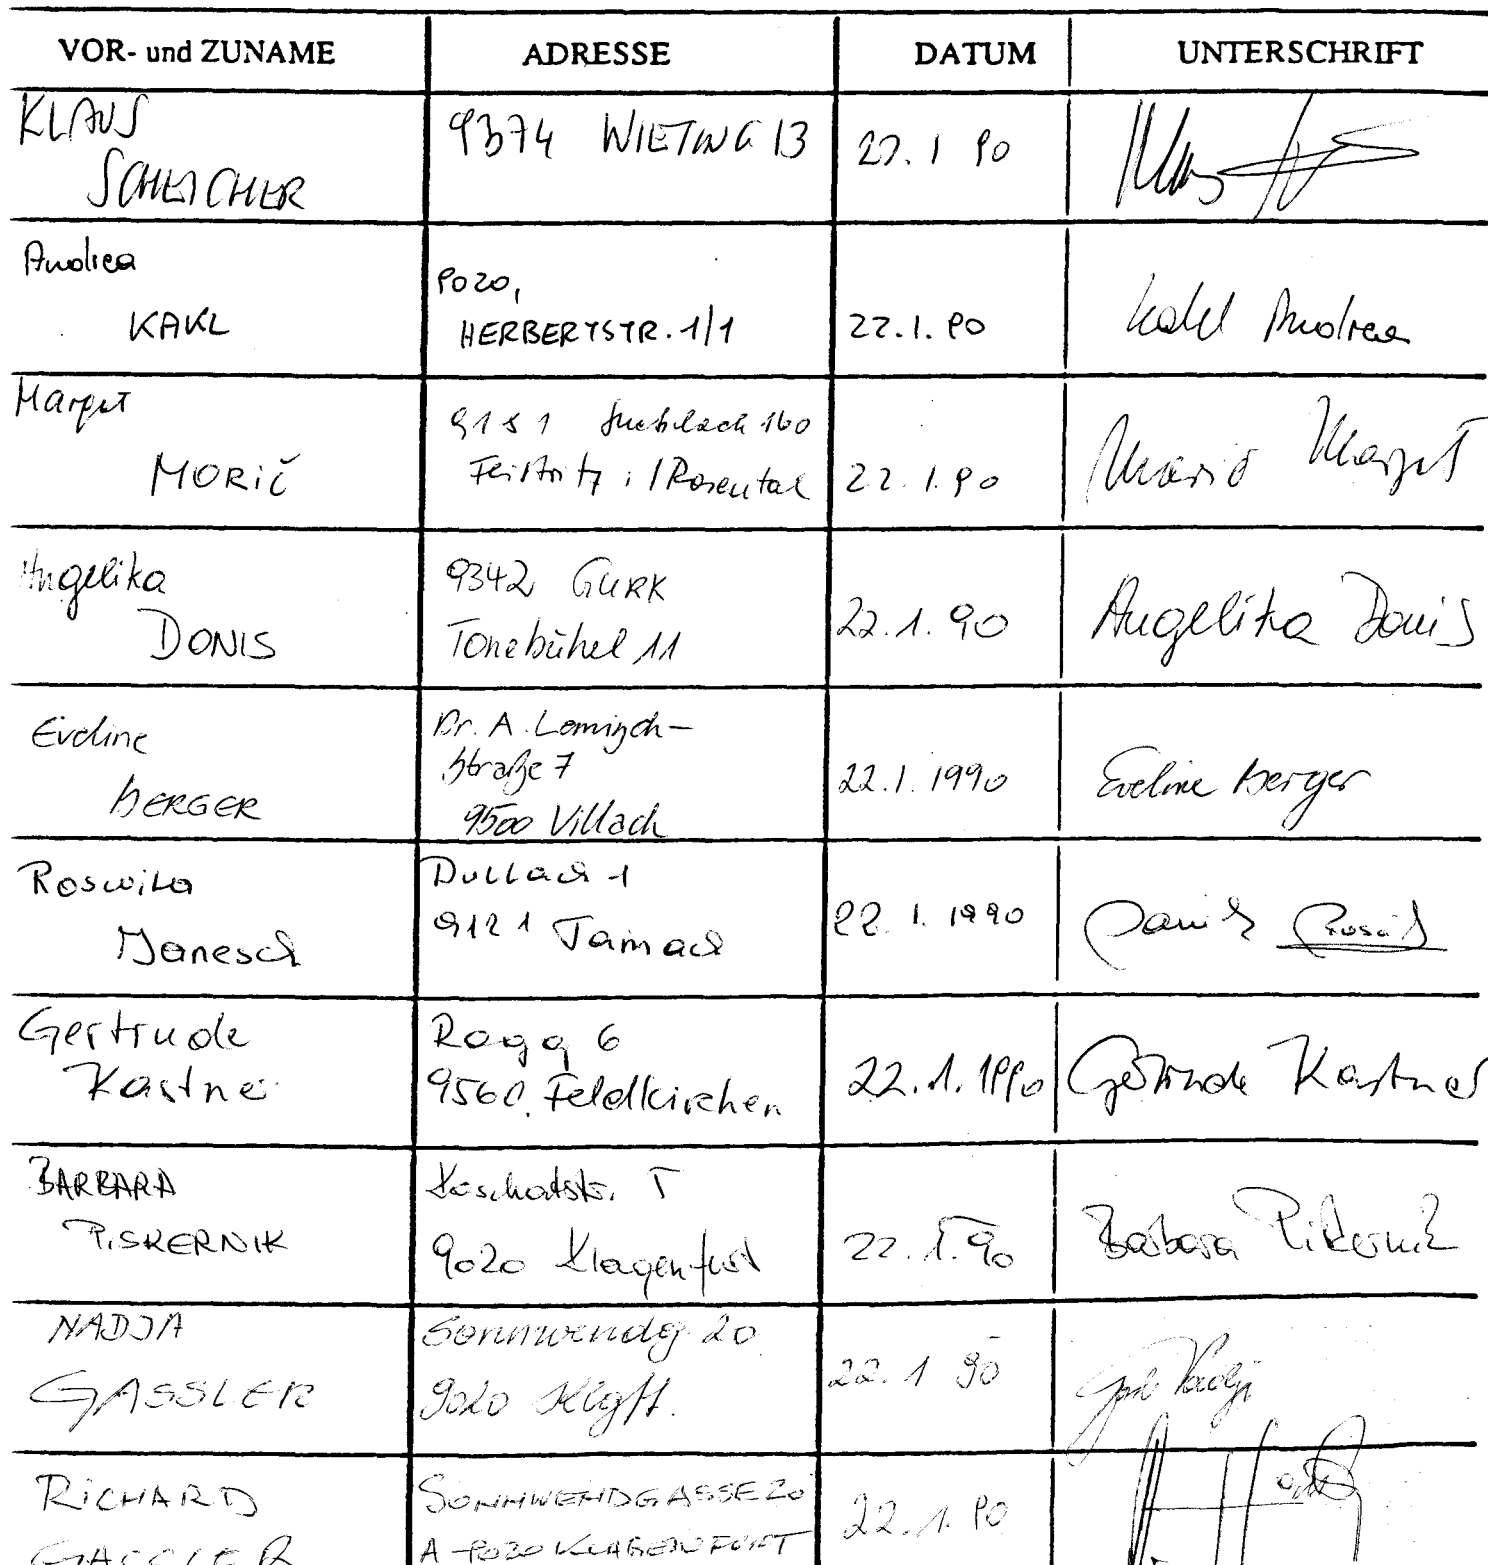 VOR- und ZUNAME ADRESSE DATUM UNTERSCHRIFT
KLAUS
SCHLEICHER
9374 WIETING 13
22. 1 90
Klaus
Andrea
KAKL
9020,
HERBERTSTR. 1/1
22.1.90
Kakl Andrea
Margit
MORIČ
9181 160
Feistritz i/Rosental
22.1.90
Morič Margit
Angelika
DONIS
9342 GURK
Tonebühel 11
22.1.90
Angelika Donis
Eveline
BERGER
Dr. A. Lemisch-
straße 7
9500 Villach
22.1.1990
Eveline Berger
Roswita
Janesch
Dullach 1
9121 Tainach
22. 1. 1990
Gertrude
Kastner
Ragg 6
9560 Feldkirchen
22.1.1990
Gertrude Kastner
BARBARA
PISKERNIK
Koschatstr.
9020 Klagenfurt
22.1.90
Barbara Piskernik
NADJA
GASSLER
Sonnwendg 20
9020 Klgft.
22.1 90
RICHARD
GASSLER
SONNWENDGASSE 20
A-9020 KLAGENFURT
22.1.90